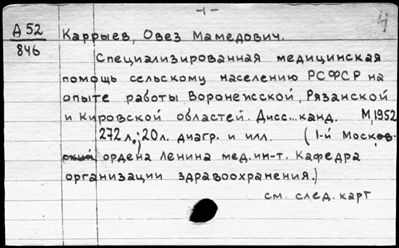 -1-
4
А 52
846
Каррыев, Овез Мамедович.
Специализированная медицинская
помощь сельскому населению РСФСР на
опыте работы Воронежской, Рязанской
и Кировской областей. Дисс... канд. М, 1952
272 л.; 20 л. диагр. и илл. (1-й Москов-
ский ордена Ленина мед. ин-т. Кафедра
организации здравоохранения.)
см. след. карт